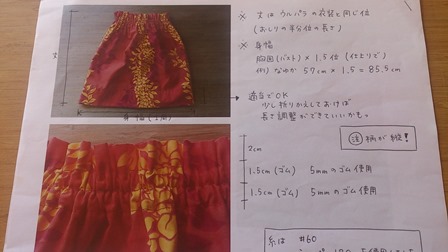 ※ 丈は ウルパラの衣装と同じ位
(おしりの半分位の長さ)
※ 身幅
胸囲(バスト) × 1.5 位 (仕上りで)
例) なゆか 57cm × 1.5 = 85.5cm
→ 適当でOK
少し折りかえしておけば
長さ調整ができていいかも。
身幅(1周)
㊟ 柄が縦!
2cm
1.5cm (ゴム) 5mmのゴム使用
1.5cm (ゴム) 5mmのゴム使用
糸は #60